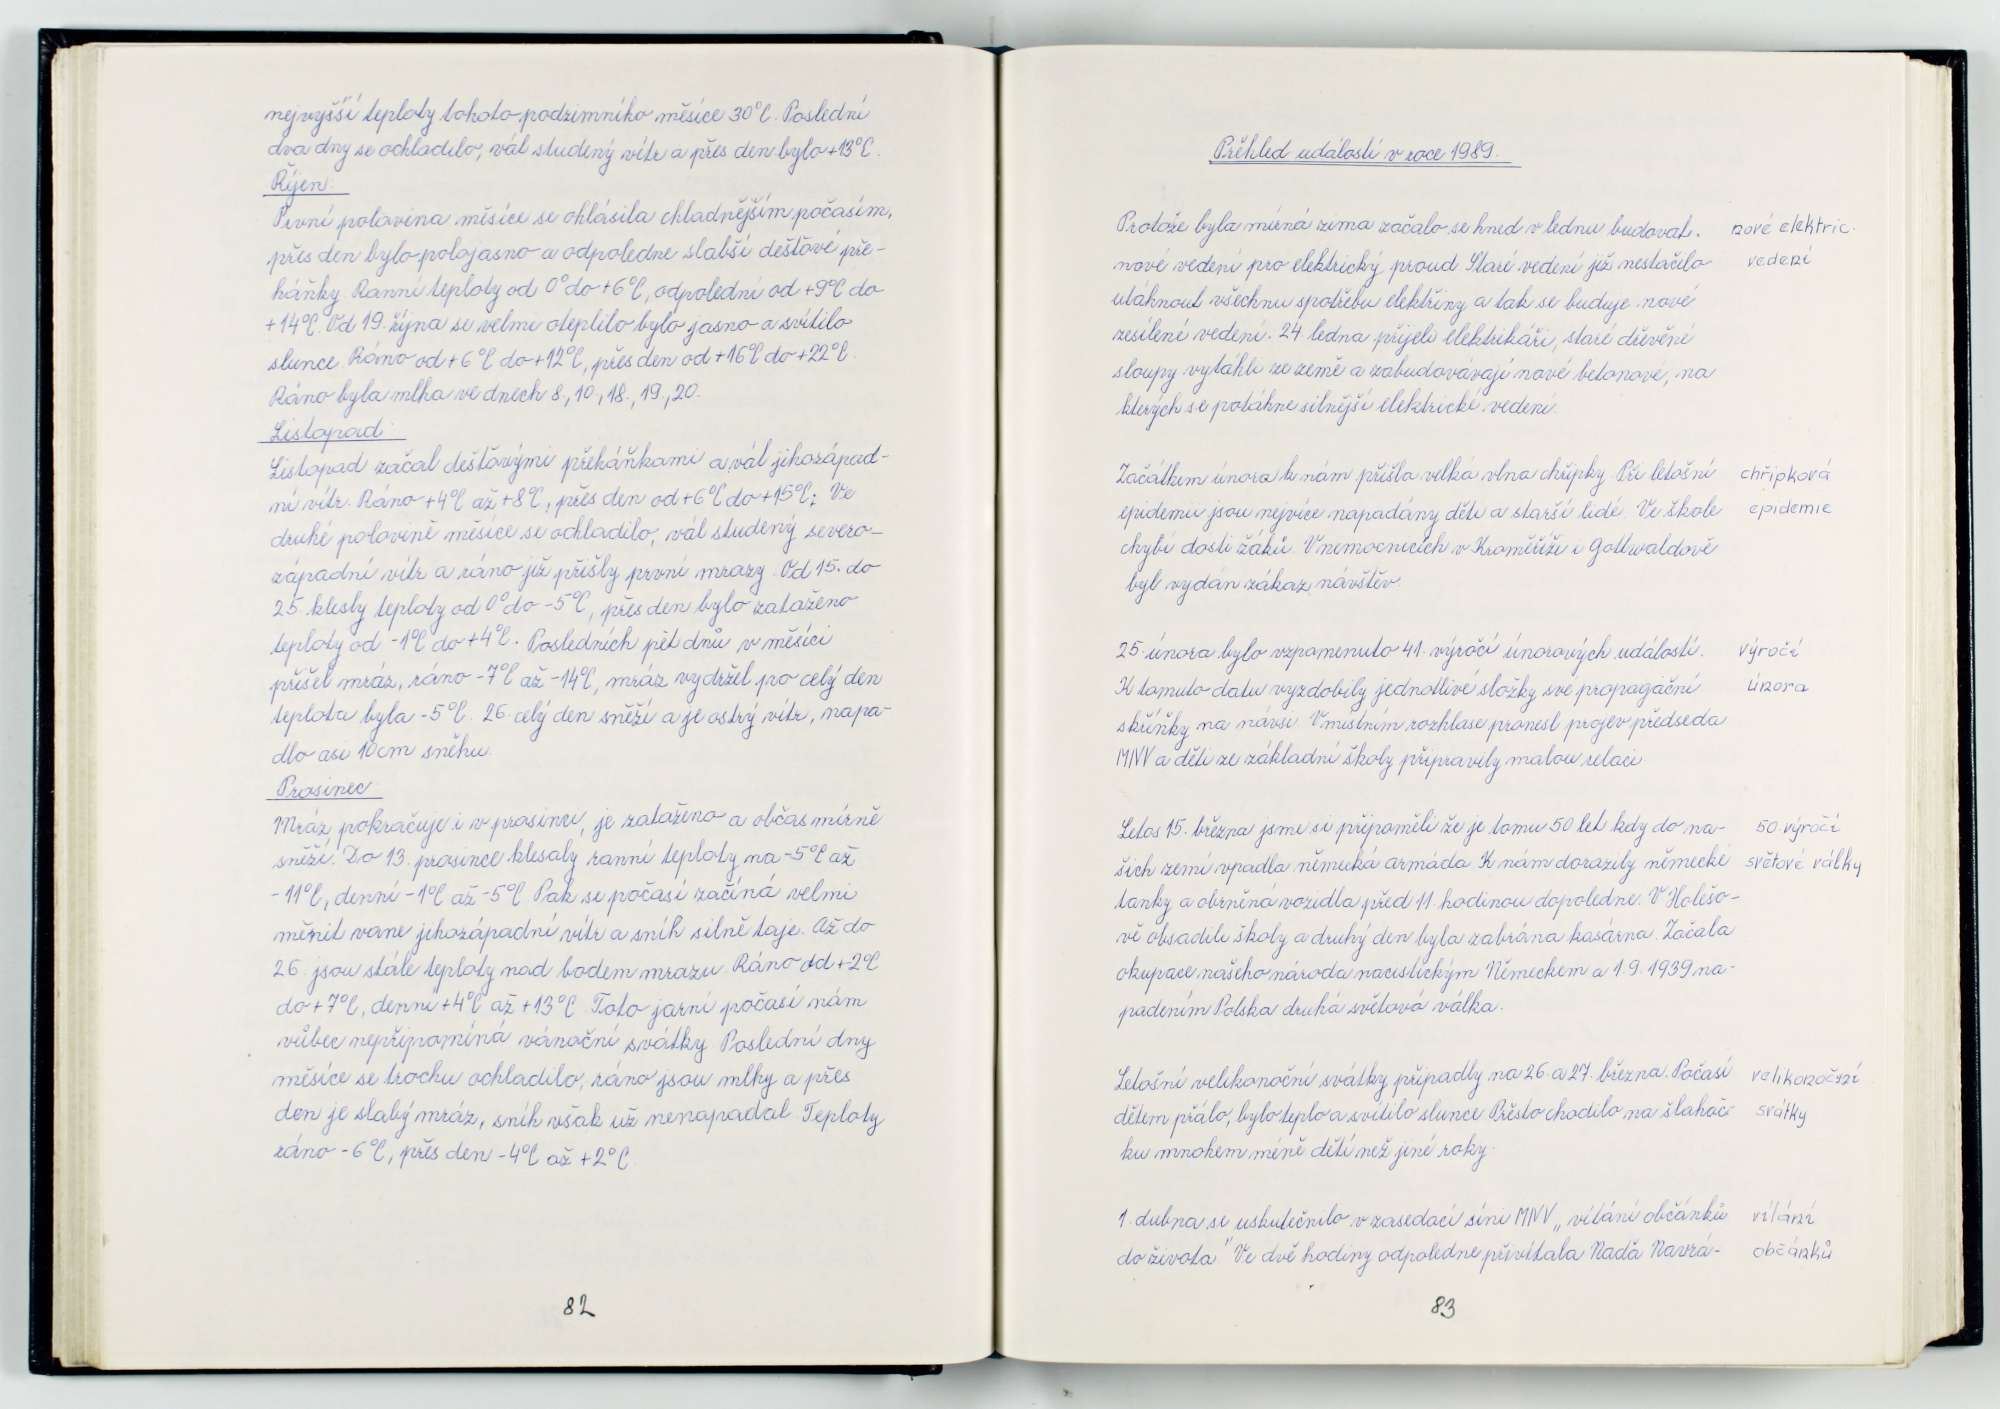 nejvyšší teploty tohoto podzimního měsíce 30°C. Poslední
dva dny se ochladilo, vál studený vítr a přes den bylo +13°C.
Říjen:
První polovina měsíce se ohlásila chladnějším počasím,
přes den bylo polojasno a odpoledne slabší dešťové pře-
háňky. Ranní teploty od 0° do +6°C, odpolední od +9°C do
+14°C. Od 19. října se velmi oteplilo bylo jasno a svítilo
slunce. Ráno od +6°C do +12°C, přes den od +16°C do +22°C.
Ráno byla mlha ve dnech 8., 10., 18., 19., 20.
Listopad:
Listopad začal dešťovými přeháňkami a vál jihozápad-
ní vítr. Ráno +4°C až +8°C, přes den od +6°C do +15°C; Ve
druhé polovině měsíce se ochladilo, vál studený severo-
západní vítr a ráno již přišly první mrazy. Od 15. do
25. klesly teploty od 0° do -5°C, přes den bylo zataženo
teploty od -1°C do +4°C. Posledních pět dnů v měsíci
přišel mráz, ráno -7°C až -14°C, mráz vydržel po celý den
teplota byla -5°C. 26. celý den sněží a je ostrý vítr, napa-
dlo asi 10 cm sněhu.
Prosinec
Mráz pokračuje i v prosinci, je zataženo a občas mírně
sněží. Do 13. prosince klesaly ranní teploty na -5°C až
-11°C, denní -1°C až -5°C. Pak se počasí začíná velmi
měnit vane jihozápadní vítr a sníh silně taje. Až do
26. jsou stále teploty nad bodem mrazu. Ráno od +2°C
do +7°C, denní +4°C až +13°C. Toto jarní počasí nám
vůbec nepřipomíná vánoční svátky. Poslední dny
měsíce se trochu ochladilo, ráno jsou mlhy a přes
den je slabý mráz, sníh však už nenapadal. Teploty
ráno -6°C, přes den -4°C až +2°C.
82
Přehled událostí v roce 1989.
Protože byla mírná zima začalo se hned v lednu budovat.
nové elektric.
nové vedení pro elektrický proud. Staré vedení již nestačilo
vedení
utáhnout všechnu spotřebu elektřiny a tak se buduje nové
zesílení vedení. 24. ledna přijeli elektrikáři, staré dřevěné
sloupy vytáhli ze země a zabudovávají nové betonové, na
kterých se potáhne silnější elektrické vedení.
Začátkem února k nám přišla velká vlna chřipky. Při letošní
chřipková
epidemii jsou nejvíce napadány děti a starší lidé. Ve škole
epidemie
chybí dosti žáků. V nemocnicích v Kroměříži i Gottwaldově
byl vydán zákaz návštěv.
25. února bylo vzpomenuto 41. výročí únorových událostí.
výročí
K tomuto datu vyzdobily jednotlivé složky své propagační
února
skříňky na návsi. V místním rozhlase pronesl projev předseda
MNV a děti ze základní školy připravily malou relaci.
Letos 15. března jsme si připoměli že je tomu 50 let kdy do na-
50. výročí
šich zemí vpadla německá armáda. K nám dorazily německé
světové války
tanky a obrněná vozidla před 11. hodinou dopoledne. V Holešo-
vě obsadili školy a druhý den byla zabrána kasárna. Začala
okupace našeho národa nacistickým Německem a 1.9.1939 na-
padením Polska druhá světová válka.
Letošní velikonoční svátky připadly na 26. a 27. března. Počasí
velikonoční
dětem přálo, bylo teplo a svítilo slunce. Přesto chodilo na šlahač-
svátky
ku mnohem méně dětí než jiné roky.
1. dubna se uskutečnilo v zasedací síni MNV „vítání občánků
vítání
do života" Ve dvě hodiny odpoledne přivítala Naďa Navrá-
občánků
83